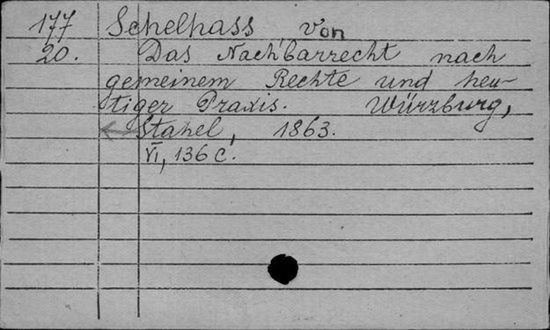 177 Schelhass, von
20. Das Nachbarrecht nach
gemeinem Rechte und heu-
tiger Praxis. Würzburg,
Stahel, 1863.
VI, 136 c.